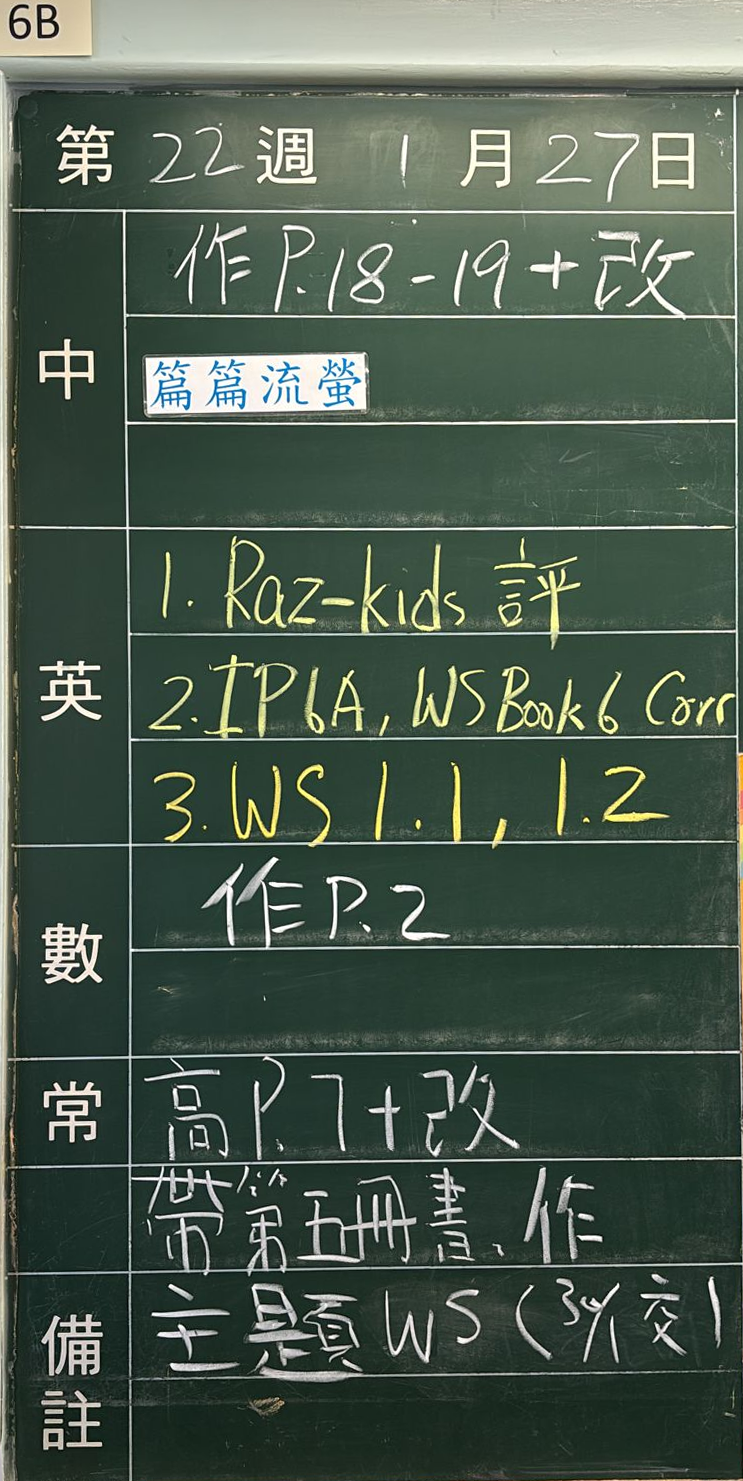 6B
第 22 週 1 月 27 日
中
作 P.18-19 + 改
篇篇流螢
英
1. Raz-kids 評
2. IP6A, WS Book 6 Corr
3. WS 1.1, 1.2
數
作 P.2
常
高 P.7 + 改
帶第五冊書、作
備註
主題 WS (交)